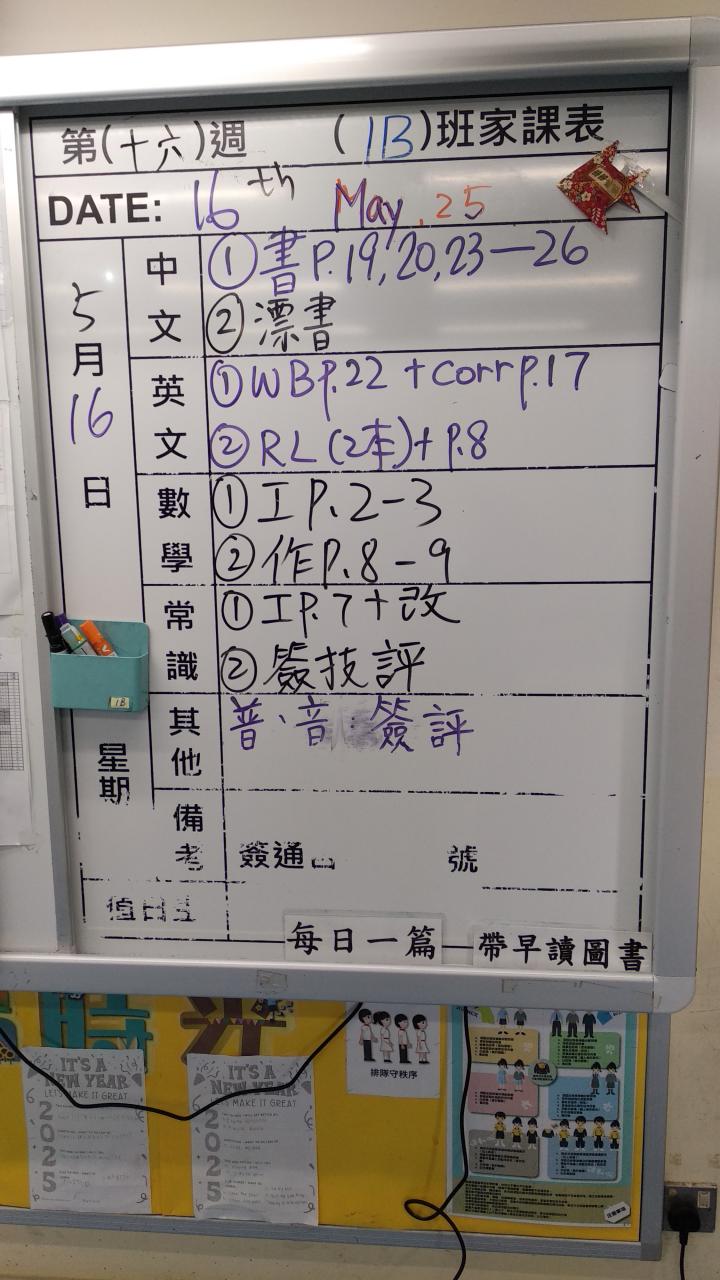 第(十六)週 (1B)班家課表
DATE: 16th May, 25
5月16日
星期
中文
①書P.19,20,23—26
②漂書
英文
①WBp.22 +corrp.17
②RL(2本)+p.8
數學
①工P.2-3
②作P.8-9
常識
①工P.7+改
②簽技評
其他
普、音 簽評
備考
簽通 號
值日生
每日一篇
帶早讀圖書
1B
IT'S A NEW YEAR
LET'S MAKE IT GREAT
2025
IT'S A NEW YEAR
MAKE IT GREAT
2025
排隊守秩序